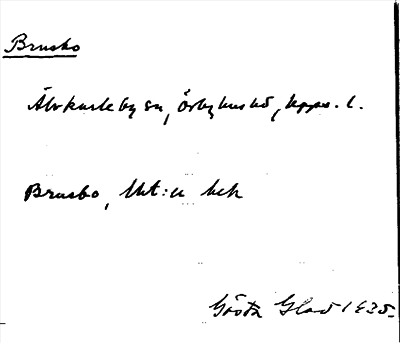 Brusbo
Älvkarleby sn, Örbyhus hd, Upps. l.
Brusbo, Ukt:n bek
Gösta Glad 1935.